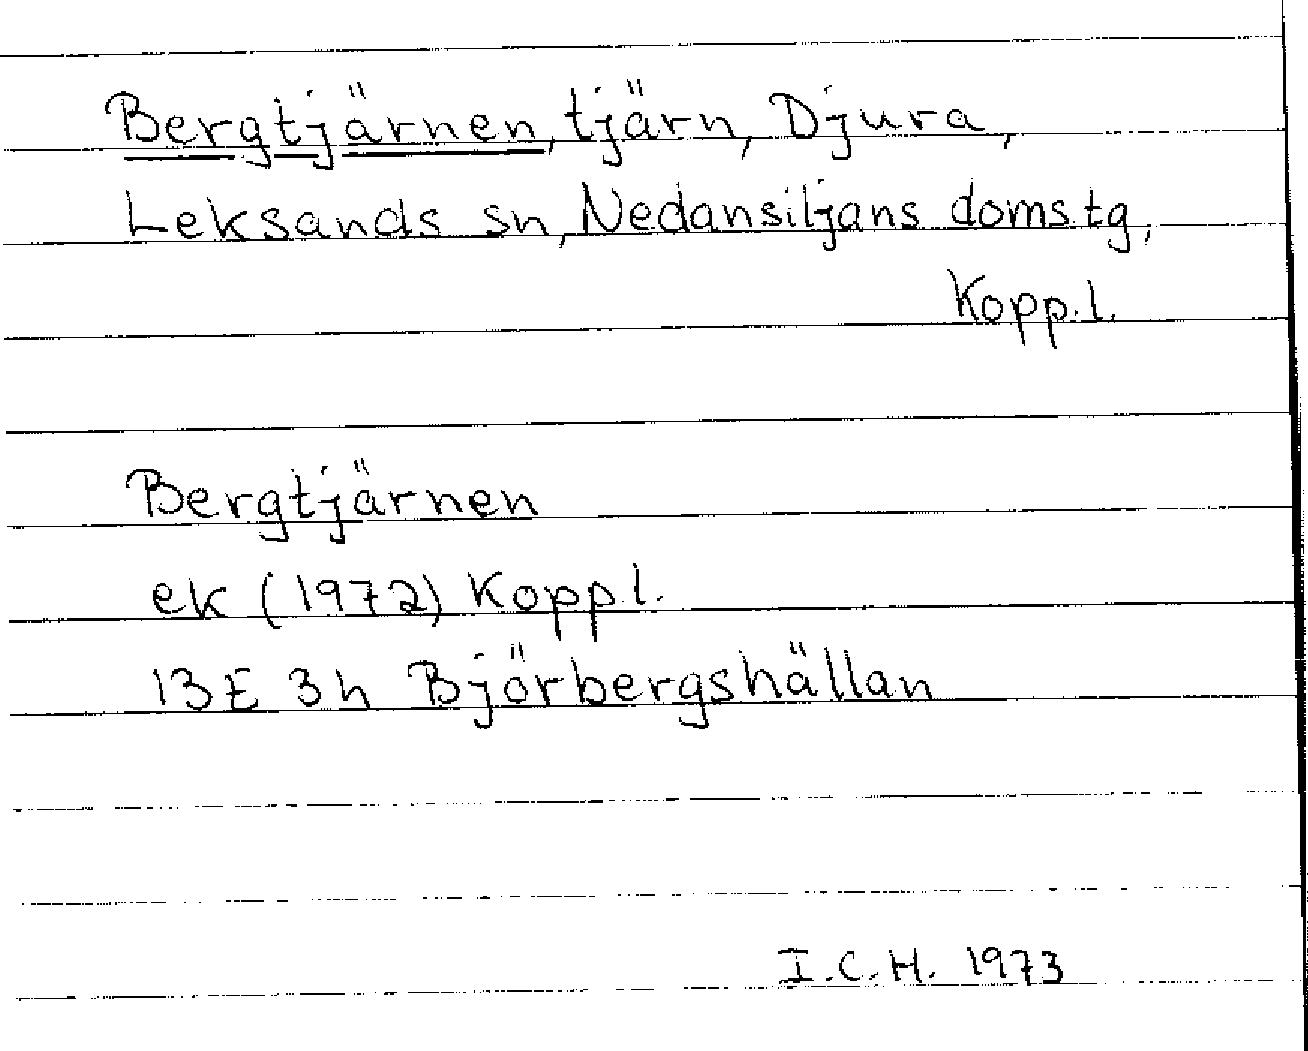 Bergtjärnen, tjärn, Djura,
Leksands sn, Nedansiljans doms.tg,
Kopp.l.
Bergtjärnen
ek (1972) Koppl.
13E 3h Björbergshällan
I.C.H. 1973